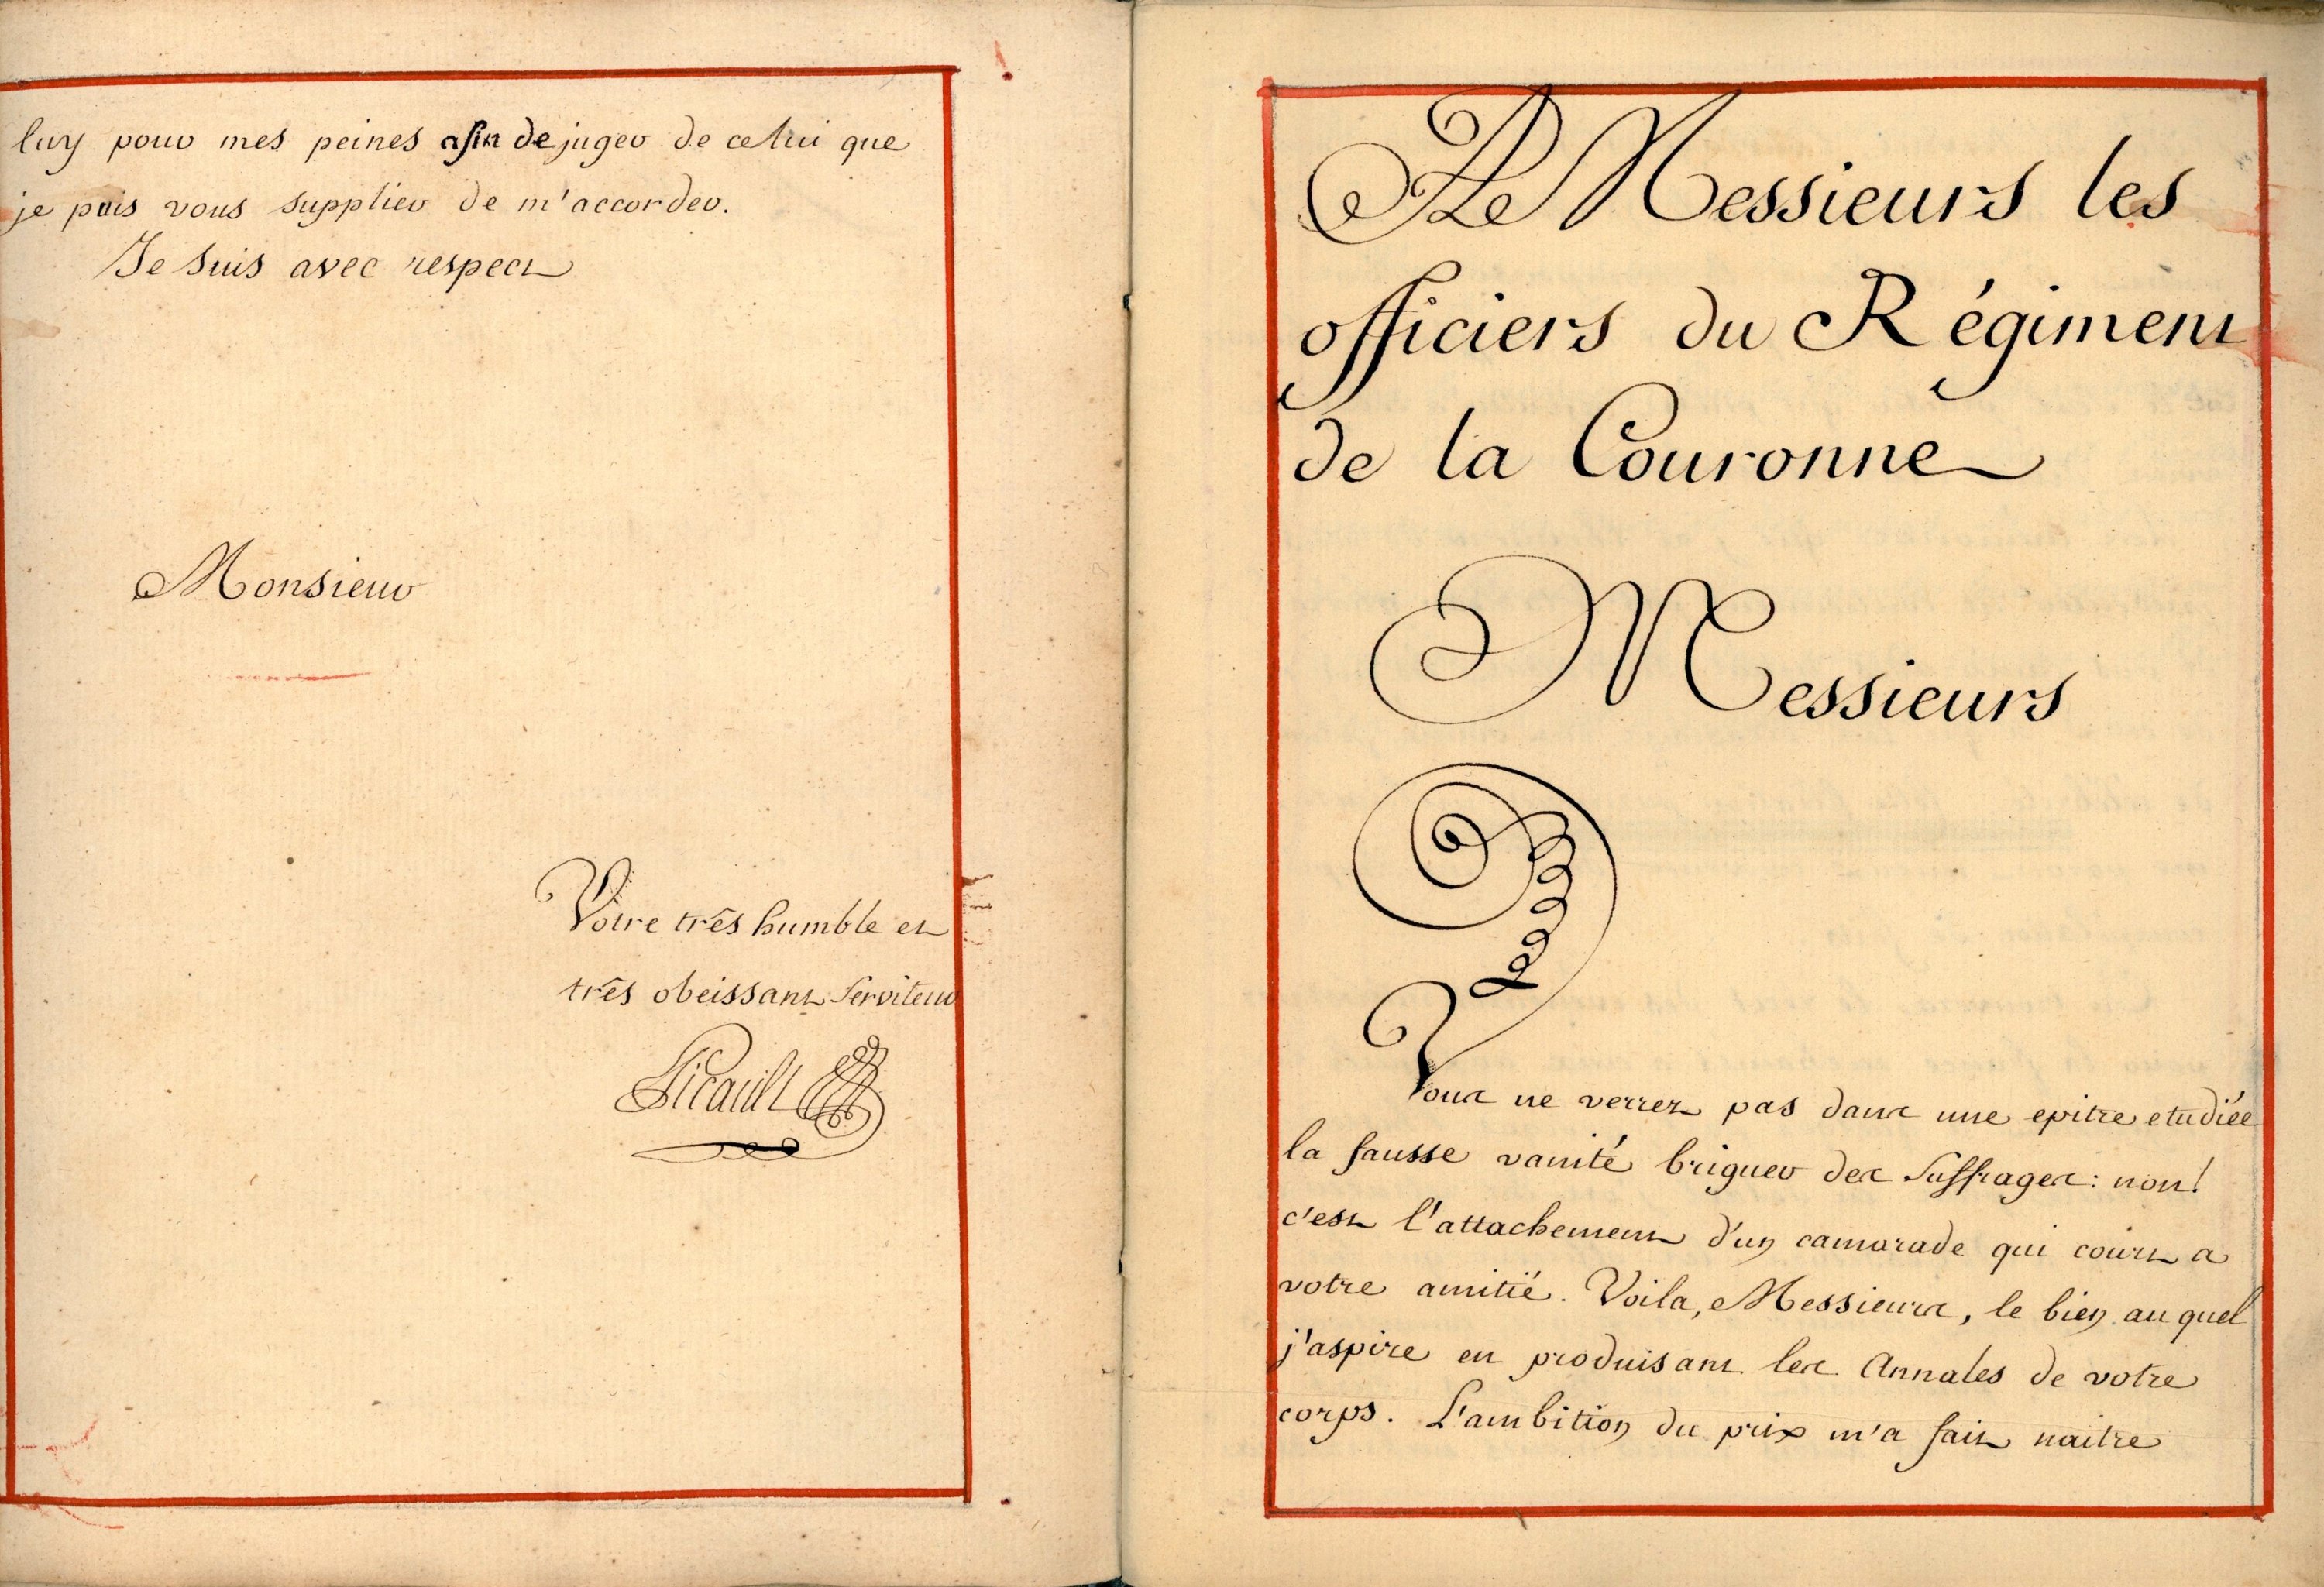 luy pour mes peines afin de juger de celui que
je puis vous supplier de m'accorder.
Je suis avec respect
Monsieur
Votre três humble et
três obeissant Serviteur
Sicault
A Messieurs les
officiers du Régiment
de la Couronne
Messieurs
Vous ne verrez pas dans une epitre etudiée
la fausse vanité briguer des Suffrages: non!
c'est l'attachement d'un camarade qui court a
votre amitié. Voila, Messieurs, le bien au quel
j'aspire en produisant les Annales de votre
corps. L'ambition du prix m'a fait naitre